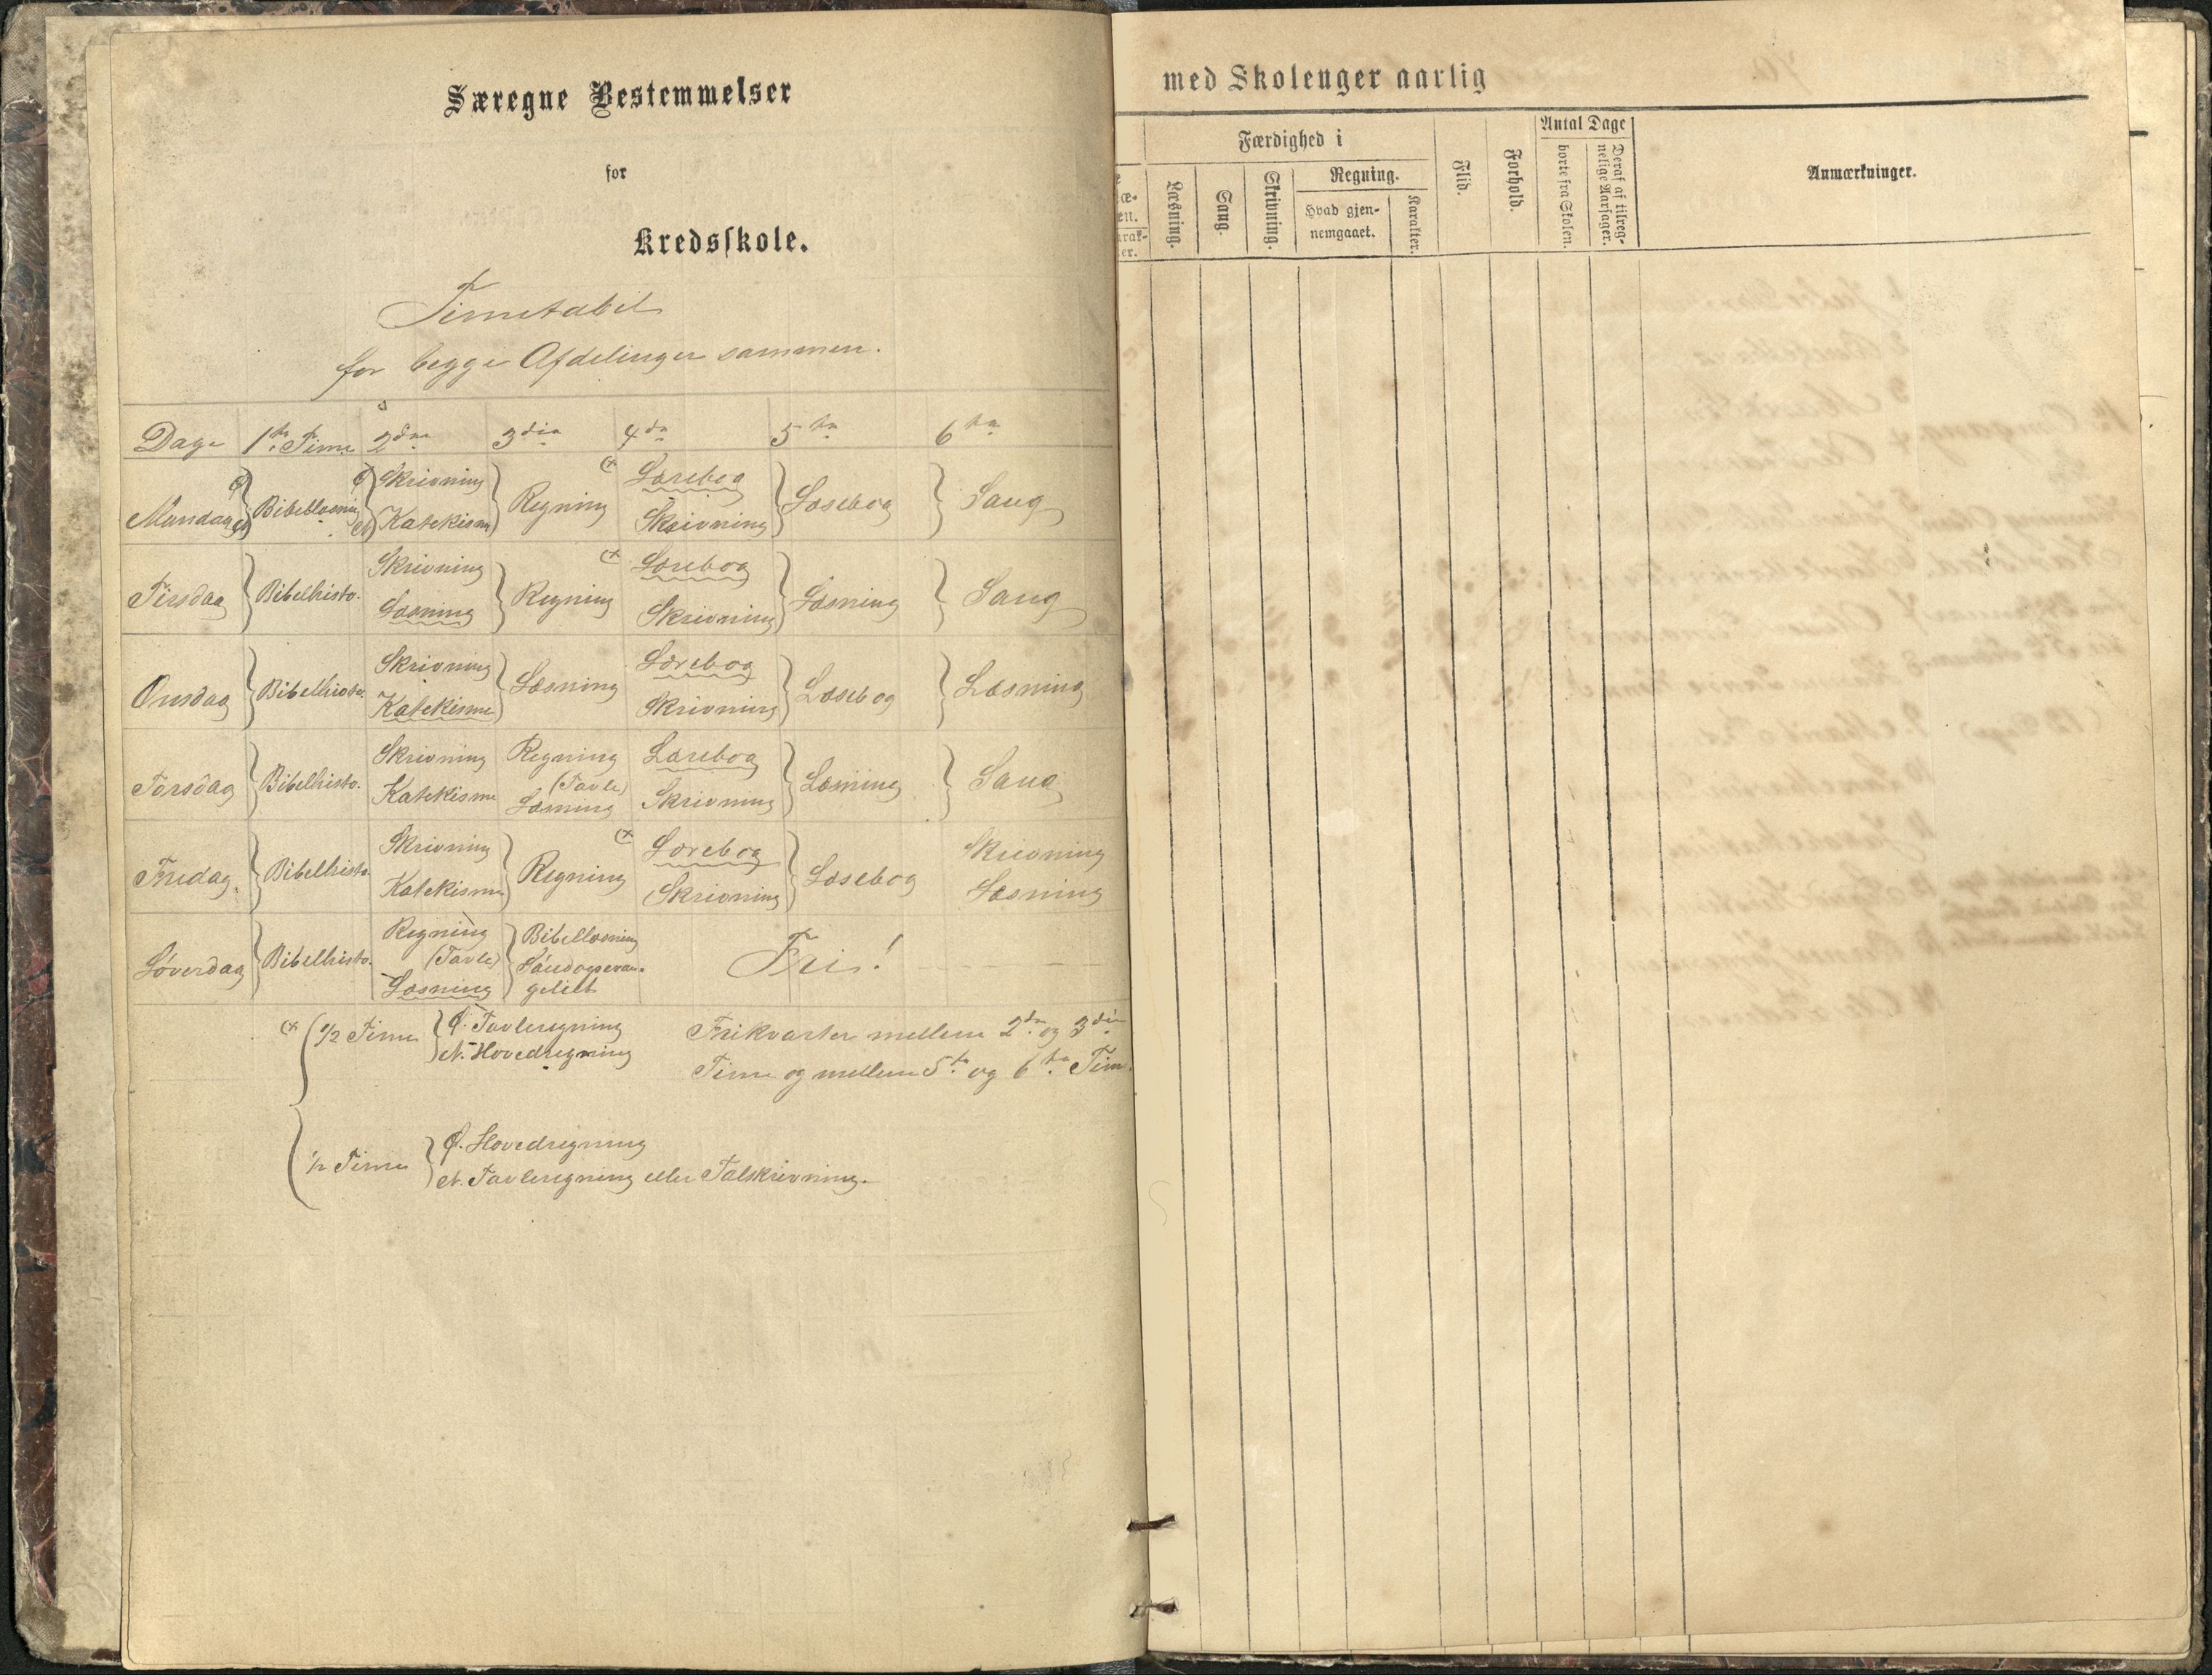 Særegne Bestemmelser
for
Kredsskole.
Timetabel
for begge Afdelinger sammen.
Dage 1ste Time 2den 3die 4de 5te 6te
Mandag Bibellæsning Skrivning Regning Lærebog Læsebog Sang
N Katekisme Skrivning
Tirsdag Bibelhisto. Skrivning Regning Lærebog Læsning Sang
Læsning Skrivning
Onsdag Bibelhisto. Skrivning Læsning Lærebog Læsebog Læsning
Katekisme Skrivning
Torsdag Bibelhisto. Skrivning Regning (Tavle) Lærebog Læsning Sang
Katekisme Læsning Skrivning
Fredag. Bibelhisto. Skrivning Regning Lærebog Læsebog Skrivning
Katekisme Skrivning Læsning
Løverdag Bibelhisto. Regning (Tavle) Bibellæsning Fri!
Læsning Søndagsevan-
geliet
(x 1/2 Time Ø. Tavleregning
N. Hovedregning
Frikvarter mellem 2den og 3die
Time og mellem 5te og 6te Tim
1/2 Time Ø. Hovedregning
N. Tavleregning eller Talskrivning.
med Skoleuger aarlig
Færdighed i
Læsning.
Sang.
Skrivning.
Regning.
Hvad gjen-
nemgaaet.
Karakter.
Flid.
Forhold.
Antal Dage
borte fra Skolen.
Deraf af tilreg-
nelige Aarsager.
Anmærkninger.